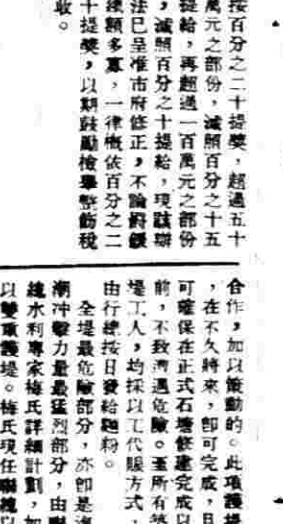 按百分之二十提獎，超過五十
萬元之部份，減照百分之十五
提給，再超過一百萬元之部份
，減照百分之十提給，現該辦
法已呈准市府修正，不論罰鍰
總額多寡，一律概依百分之二
十提獎，以期鼓勵檢舉整飭稅
收。
合作，加以策動的。此項護
，在不久將來，即可完成，且
可確保在正式石塘修建完成以
前，不致遭遇危險。至所有築
堤工人，均採以工代賑方式，
由行總按日發給麵粉。
全堤最危險部分，亦即是海
潮冲擊力量最猛烈部分，由聯
總水利專家梅氏詳細計劃，加
以雙重護堤。梅氏現任聯總以